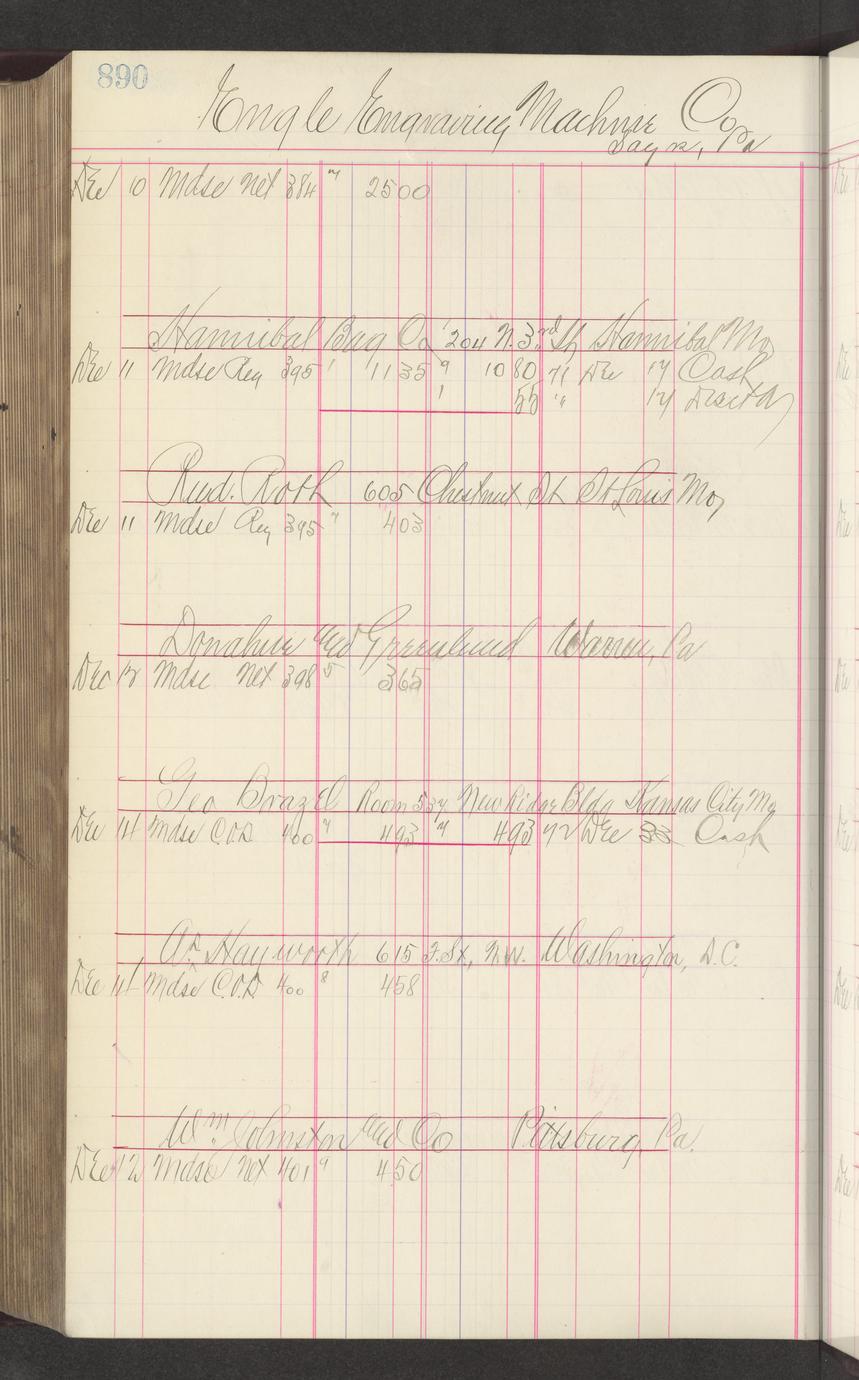 890
Engle Engraving Machine Co,
Sayre, Pa
Dec 10 Mdse Net 384 " 2500
Hannibal Bag Co 204 N. 3rd St, Hannibal Mo,
Dec 11 Mdse Reg 395 1 1135 9 1080 71 Dec 17 Cash
1 55 " 17 Disct
Rud. Roth 605 Chestnut St St Louis Mo,
Dec 11 Mdse Reg 395 " 403
Donahue and Greenlund Warren, Pa
Dec 12 Mdse Net 398 5 365
Geo Brazel Room 537 New Ridge Bldg Kansas City Mo
Dec 14 Mdse C.O.D 400 " 493 " 493 72 Dec 23 Cash
Hayworth 615 F. St, N.W. Washington, D.C.
Dec 14 Mdse C.O.D 400 8 458
Wm Johnston and Co Pittsburg, Pa.
Dec 12 Mdse Net 401 9 450